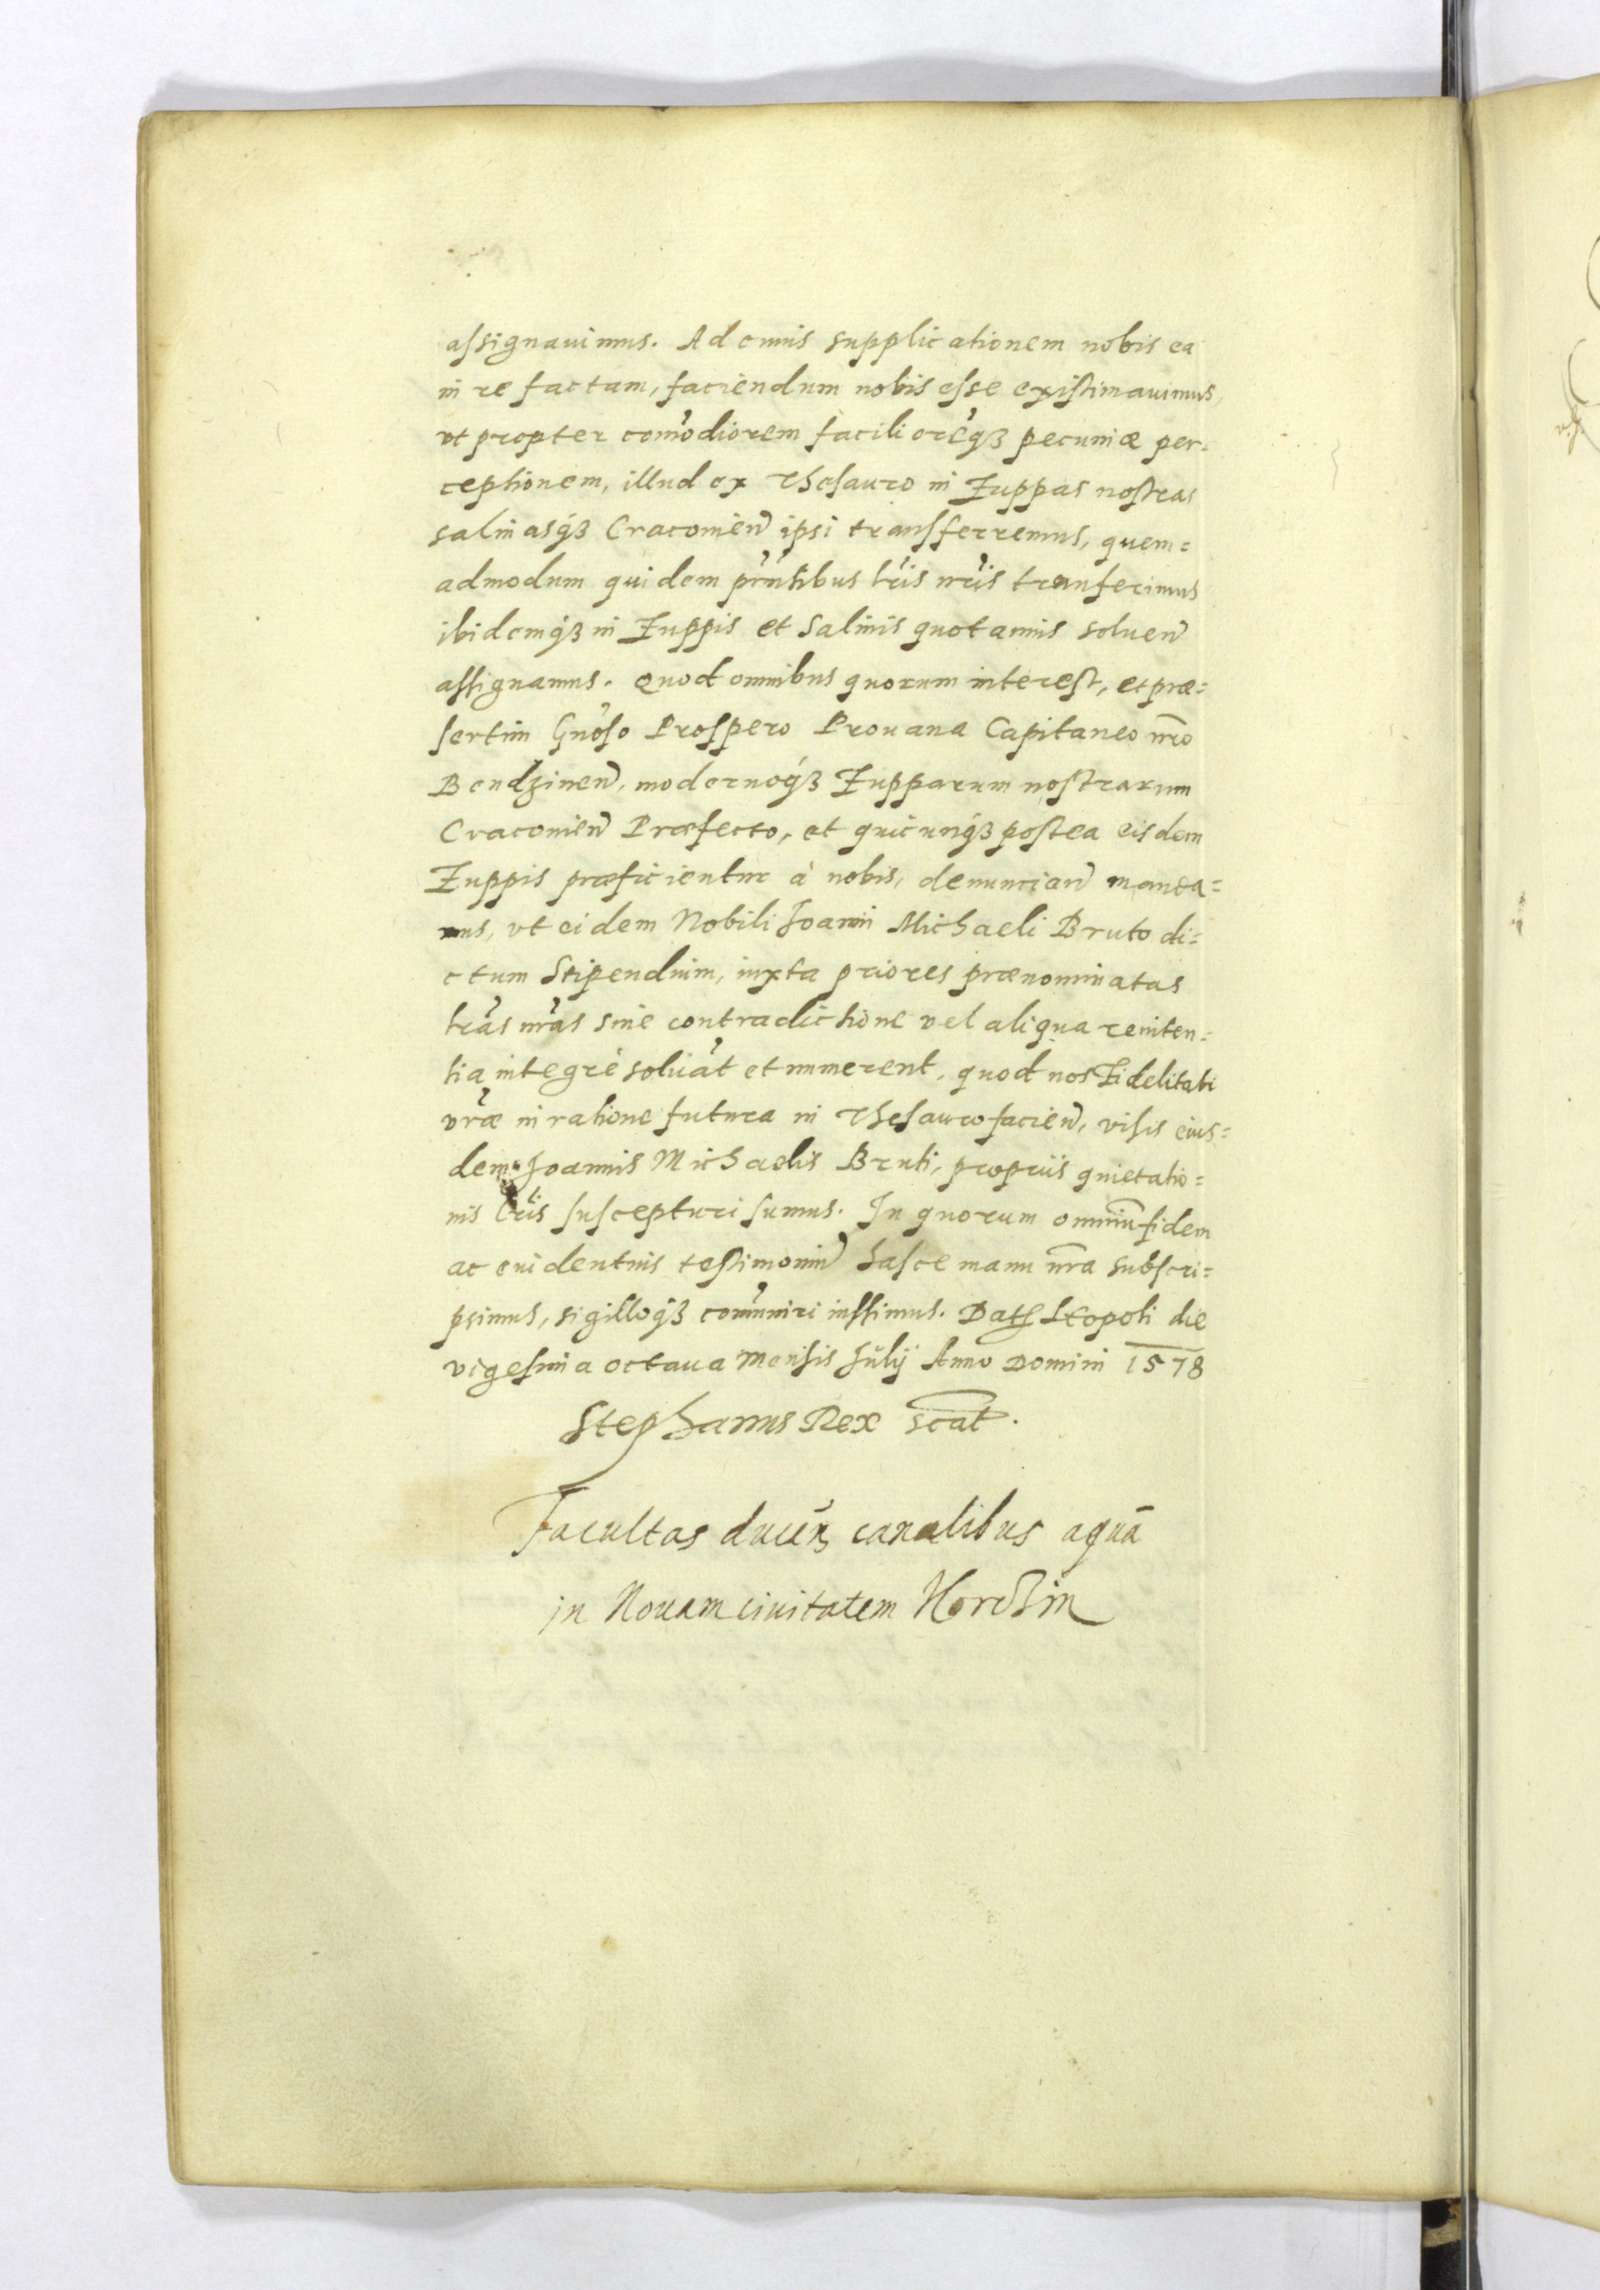 assignauimus. Ad cuius supplicationem nobis ea
in re factam, faciendum nobis esse existimauimus,
vt propter com̃odiorem faciliorẽqȝ pecuniæ per=
ceptionem, illud ex Thesauro in Zuppas nostras
salinasqȝ Cracouień ipsi transferremus, quem=
admodum quidem pñtibus lris nris transferimus
ibidemqȝ in Zuppis et Salinis quotannis soluen̄
assignamus. Quod omnibus quorum interest, et præ=
sertim Gnoso Prospero Prouana Capitaneo nro
Bendzinen̄, modernoqȝ Zupparum nostrarum
Cracouien̄ Præfecto, et quicunqȝ postea eisdem
Zuppis præficientur à nobis, denuncian̄ manda=
mus, vt eidem Nobili Joanni Michaeli Bruto di=
ctum Stipendium, iuxta priores prænominatas
lras nras sine contradictione vel aliqua reniten=
tia integrè soluãt et numerent, quod nos Fidelitati
vræ in ratione futura in Thesauro facien̄, visis eius=
dem Joannis Michaelis Bruti, propriis quietatio=
nis lris suscepturi sumus. In quorum omniũ fidem
ac euidentius testimoniũ hasce manu nra subscri=
psimus, sigilloqȝ com̃uniri iussimus. Dat Leopoli die
vigesima octaua Mensis Julij Anno Domini 1578
Stephanus Rex scat.
Facultas ducen̄ canalibus aquã
in Nouam ciuitatem